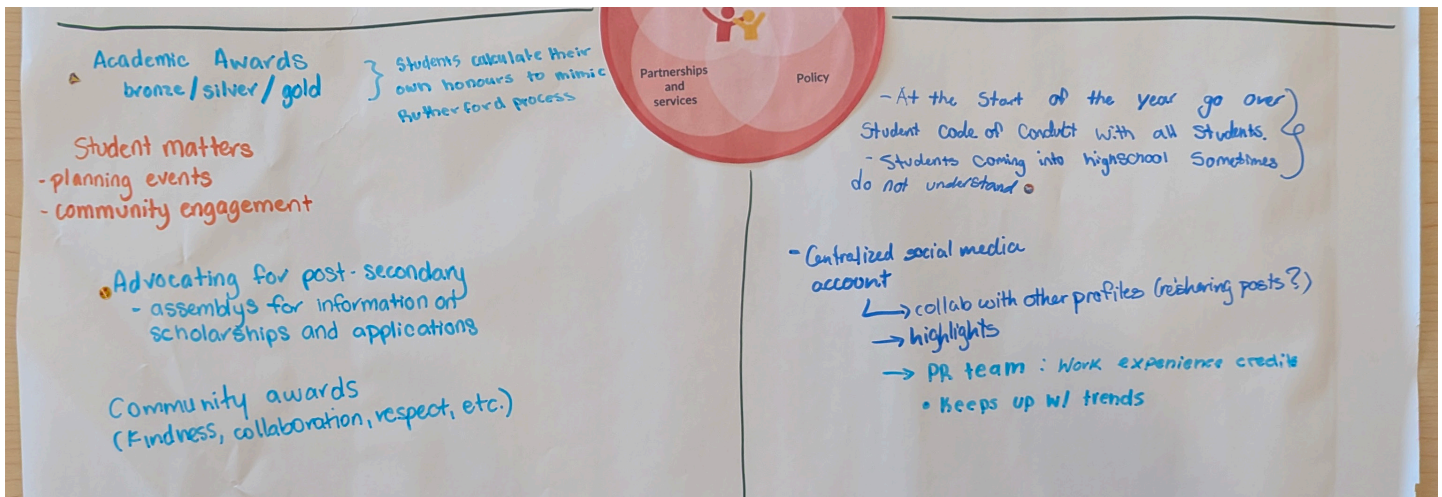 Academic Awards
bronze/silver/gold
Students calculate their
own honours to mimic
Rutherford process
Student matters
- planning events
- community engagement
Advocating for post-secondary
- assemblys for information on
scholarships and applications
Community awards
(Kindness, collaboration, respect, etc.)
Partnerships
and
services
Policy
- At the Start of the year go over
Student Code of Conduct with all Students.
- Students coming into highschool Sometimes
do not understand.
- Centralized social media
account
→ collab with other profiles (resharing posts?)
→ highlights
→ PR team : Work experience credits
• Keeps up w/ trends